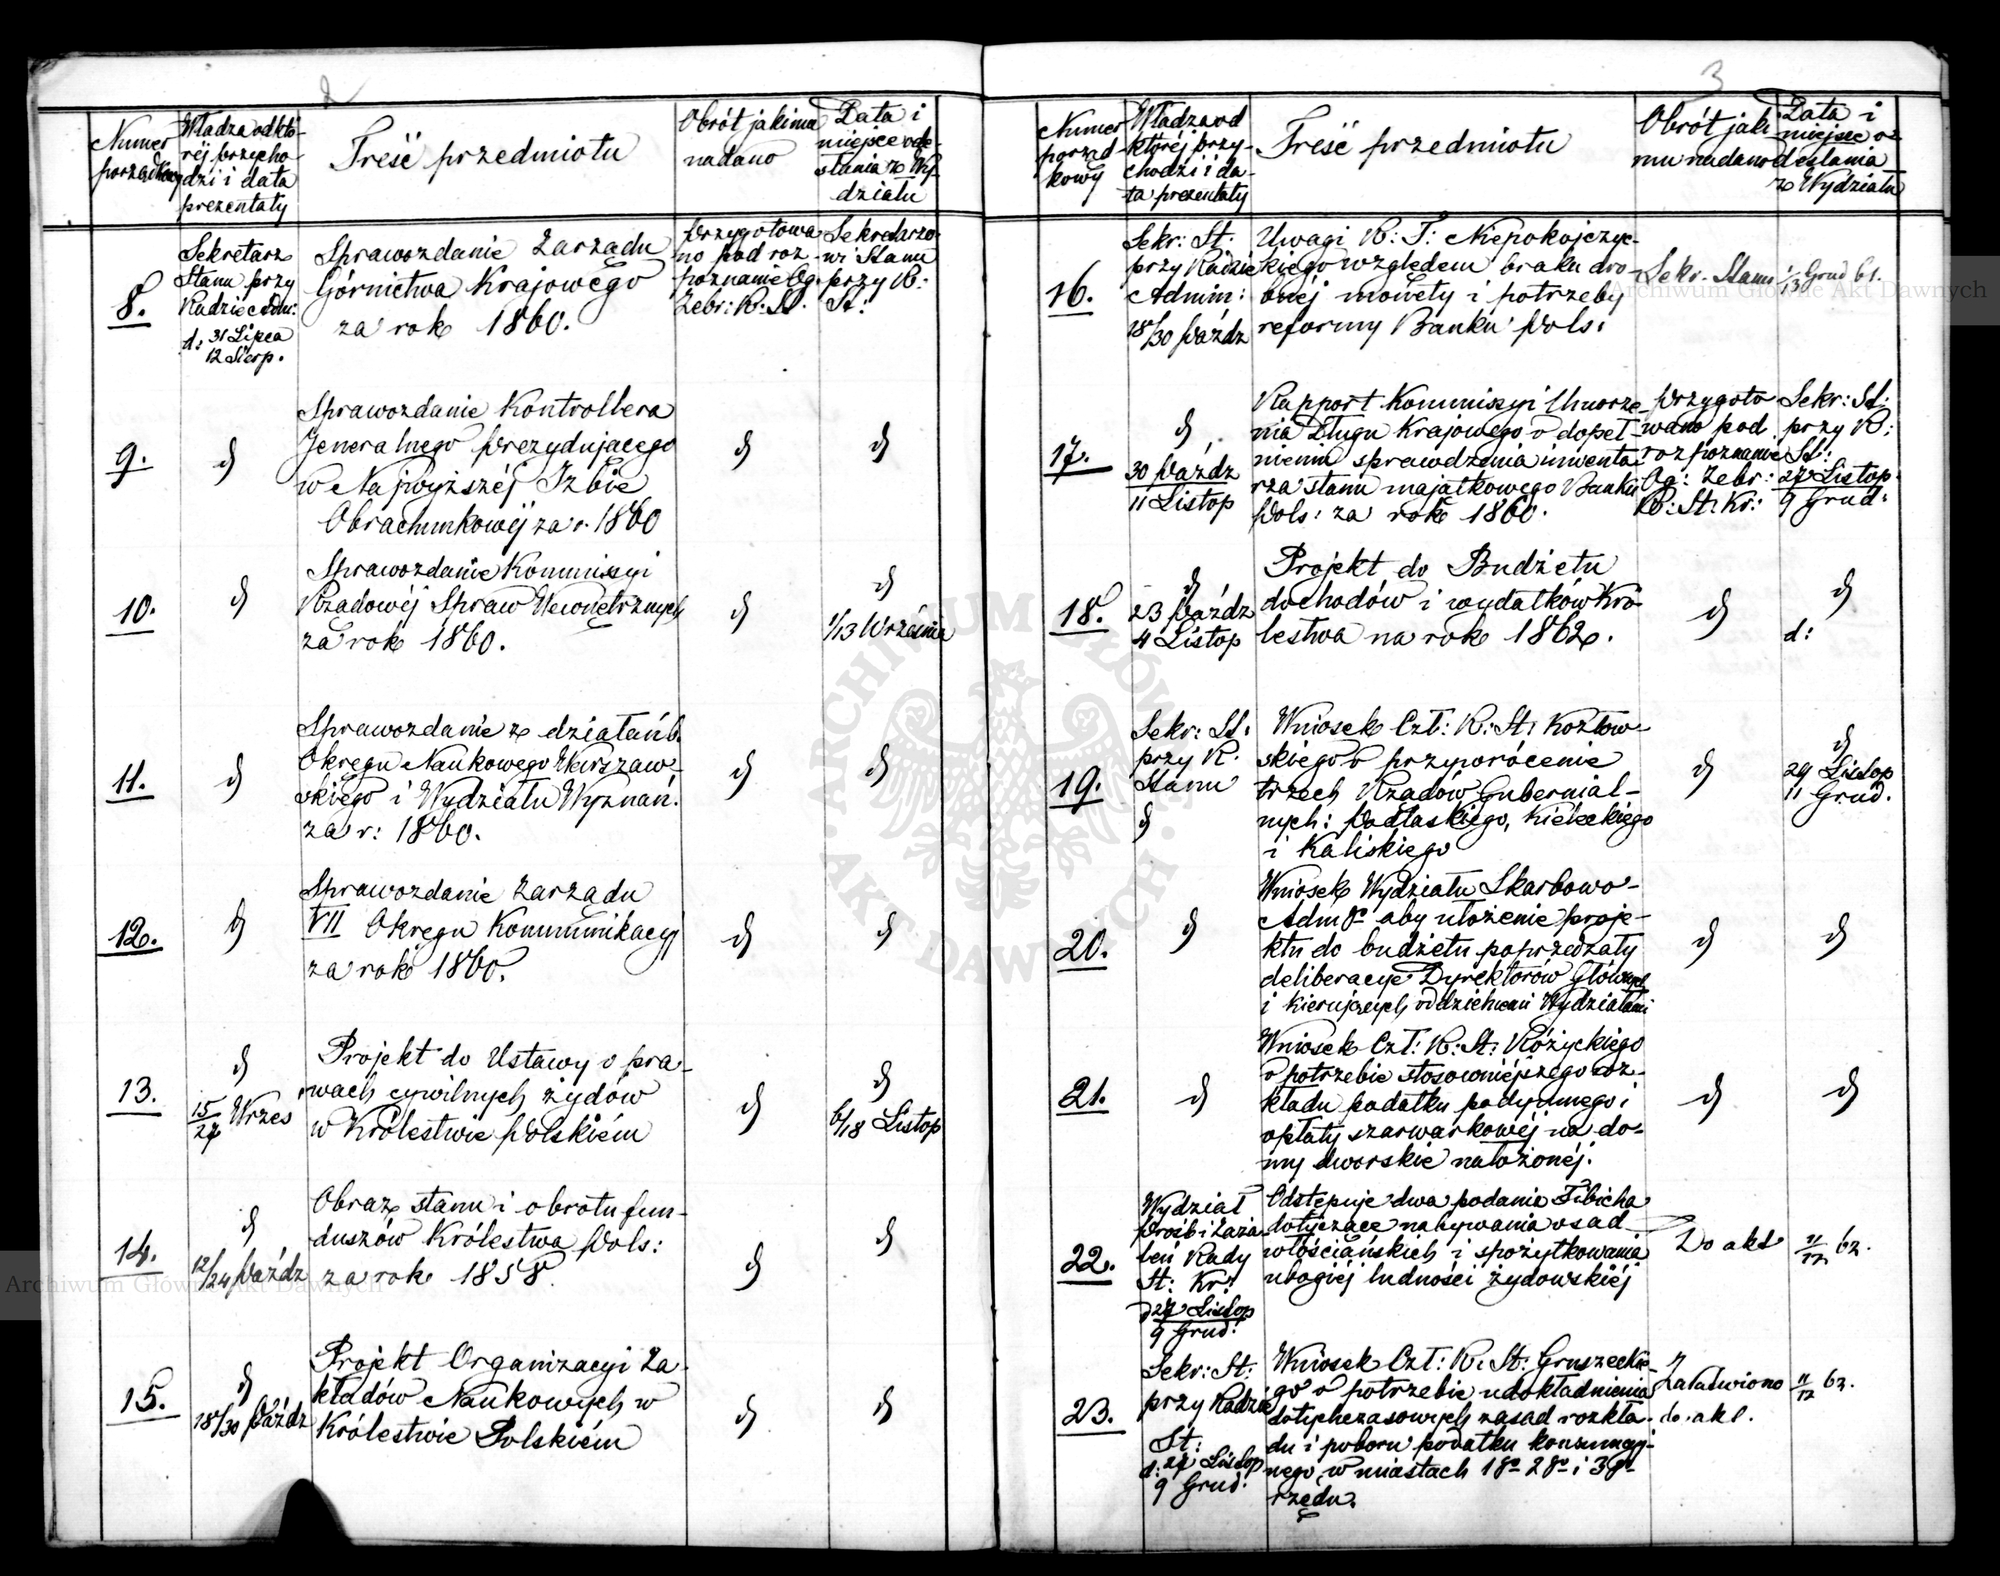 2
Numer
porządkowy
Władza od któ-
réj przycho-
dzi i data
prezentaty
Treść przedmiotu
Obrót jakimu
nadano
Data i
miejsce ode-
słania z Wy-
działu
8.
Sekretarz
Stanu przy
Radzie Adm:
d: 31 Lipca
12 Sierp.
Sprawozdanie Zarządu
Górnictwa Krajowego
za rok 1860.
Przygotowa
no pod roz
poznanie Og.
Zebr: R: St.
Sekretarzo
wi Stanu
przy R:
St:
9.
d
Sprawozdanie Kontrollera
Jeneralnego Prezydującego
w Najwyższéj Izbie
Obrachunkowéj za r. 1860
d
d
10.
d
Sprawozdanie Kommissyi
Rządowéj Spraw Wewnętrznych
za rok 1860.
d
d
1/13 Września
11.
d
Sprawozdanie z działań b.
Okręgu Naukowego Warszaw-
skiego i Wydziału Wyznań.
za r: 1860.
d
d
12.
d
Sprawozdanie Zarządu
VII Okręgu Kommunikacyj
za rok 1860.
d
d
13.
d
15/27 Wrześ
Projekt do Ustawy o pra-
wach cywilnych żydów
w Królestwie Polskiém
d
d
6/18 Listop
14.
d
12/24 Paźdz
Obraz stanu i obrotu fun-
duszów Królestwa Pols:
za rok 1858.
d
d
15.
d
18/30 Paźdz
Projekt Organizacyi Za-
kładów Naukowych w
Królestwie Polskiém
d
d
3
Numer
porząd
kowy
Władza od
któréj przy-
chodzi i da-
ta prezentaty
Treść przedmiotu
Obrót jaki
mu nadano
Data i
miejsce o-
desłania
z Wydziału
16.
Sekr: St:
przy Radzie
Admin:
18/30 Paźdz
Uwagi R: T: Niepokojczyc-
kiego względem braku dro-
bnéj monety i potrzeby
reformy Banku Pols:
Sekr. Stanu
1/13 Grud 61.
17.
d
30 Paźdz
11 Listop
Rapport Kommissyi Umorze-
nia Długu Krajowego o dopeł-
nieniu sprawdzenia inwenta-
rza stanu majątkowego Banku
Pols: za rok 1860.
Przygoto
wano pod
rozpoznanie
Og: Zebr:
R: St: Kr:
Sekr: St:
przy R:
St:
27 Listop
9 Grud:
18.
d
23 Paźdz
4 Listop
Projekt do Budżetu
dochodów i wydatków Kró
lestwa na rok 1862.
d
d
d:
19.
Sekr: St:
przy R.
Stanu
d
Wniosek Czł: R: St: Kozłow-
skiego o przywrócenie
trzech Rządów Gubernial-
nych: Podlaskiego, Kieleckiego
i Kaliskiego
d
d
29 Listop
11 Grud.
20.
d
Wniosek Wydziału Skarbowo-
Admgo aby ułożenie proje-
ktu do budżetu poprzedzały
deliberacye Dyrektorów Głównych
i Kierujących oddzielnemi Wydziałami
d
d
21.
d
Wniosek Czł: R: St: Różyckiego
o potrzebie stosowniejszego roz-
kładu podatku podymnego i
opłaty szarwarkowéj na do-
my dworskie nałożonéj.
d
d
22.
Wydział
Próśb i Zaża
leń Rady
St: Kr:
d 27 Listop
9 Grud:
Odstępuje dwa podania Fibicha
dotyczące nabywania osad
włościańskich i spożytkowania
ubogiéj ludności żydowskiéj
Do akt
11/12 62.
23.
Sekr: St:
przy Radzie
St:
d: 27 Listop
9 Grud:
Wniosek Czł: R: St: Gruszeckie-
go o potrzebie udokładnienia
dotychczasowych zasad rozkła-
du i poboru podatku konsumcyj-
nego w miastach 1go 2go i 3go
rzędu.
Załatwiono
do akt.
11/12 62.
ARCHIWUM GŁÓWNE AKT DAWNYCH
Archiwum Główne Akt Dawnych
Archiwum Główne Akt Dawnych